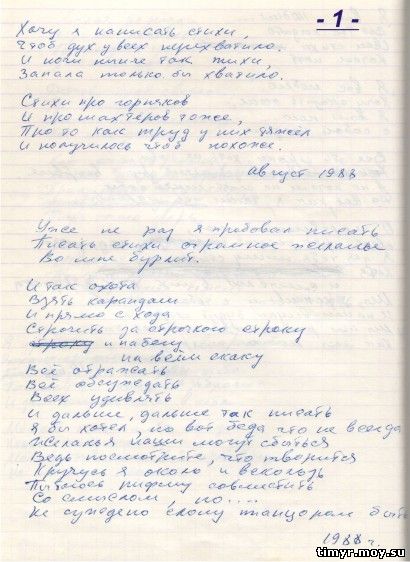 - 1 -
Хочу я написать стихи,
Чтоб дух у всех перехватило.
И ночи ныне так тихи,
Запала только бы хватило.
Стихи про горняков
И про шахтеров тоже,
Про то как труд у них тяжел
И получилось чтоб похоже.
Август 1988
Уже не раз я пробовал писать
Писать стихи огромное желанье
Во мне бурлит.
И так охота
Взять карандаш
И прямо с хода
Строчить за строчкою строку
строку и на бегу
на всём скаку
Всё отражать
Всё обсуждать
Всех удивлять
И дальше, дальше так писать
Я бы хотел, но вот беда что не всегда
Желанья наши могут сбыться
Ведь посмотрите, что творится
Кручусь я около, и вскользь
Пытаюсь рифму совместить
Со смыслом, но....
Не суждено слону танцором быть
1988 г.
timyr.moy.su